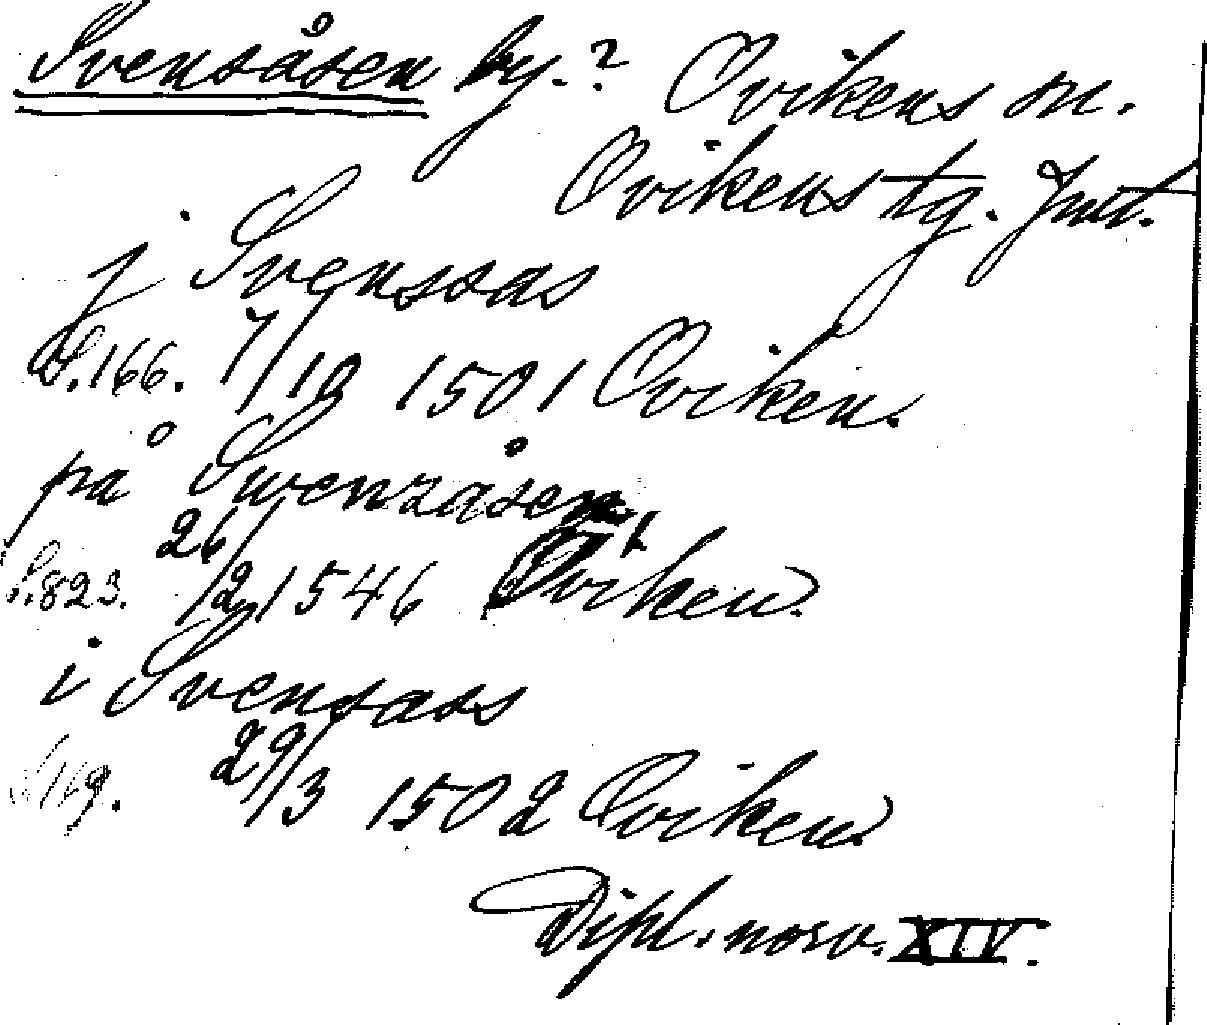 Svensåsen by.? Ovikens sn.
Ovikens tg. Jmt.
j Svenssas
S.166. 7/10 1501 Oviken.
på Swenzåsen
S.823. 26/2 1546 Oviken.
i Svensass
29/3 1502 Oviken.
Dipl. norv. XIV.